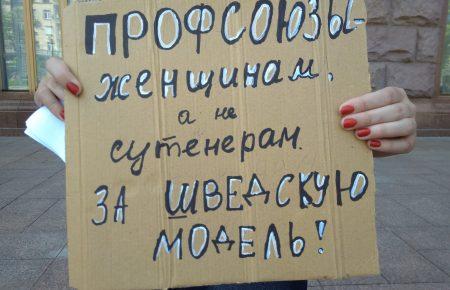 ПРОФСОЮЗЫ-
женщинам,
а не
сутенерам.
ЗА ШВЕДСКУЮ
МОДЕЛЬ!